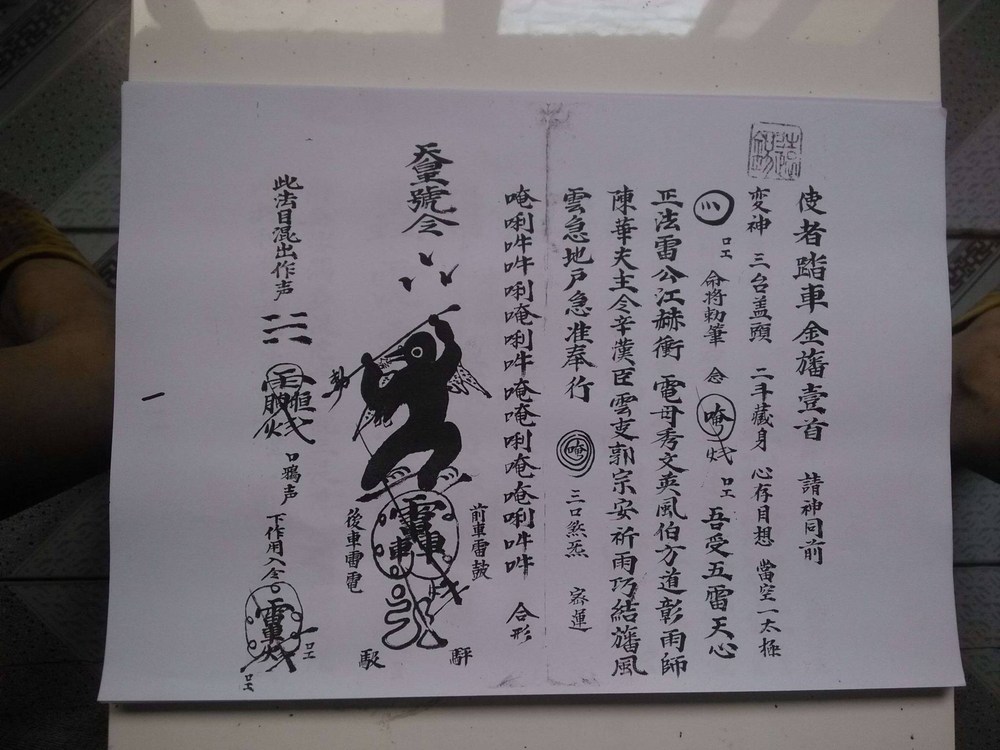 使者踏車金旛壹首 請神同前
变神 三台盖頭 二斗藏身 心存目想 當空一太極
命将勅筆 念 唵 吾受五雷天心
正法雷公江赫衝 電母秀文英風伯方道彰雨師
陳華夫主令辛漢臣雲吏郭宗安祈雨巧結旛風
雲急地户急准奉行 唵 三口煞炁 密運
唵唎吽吽唎唵唎吽唵唵唎唵唵唎吽吽 合形
天皇號令
勅
前車雷鼓
後車雷電
此法目混出作声
口鴉声 下作用入令
一